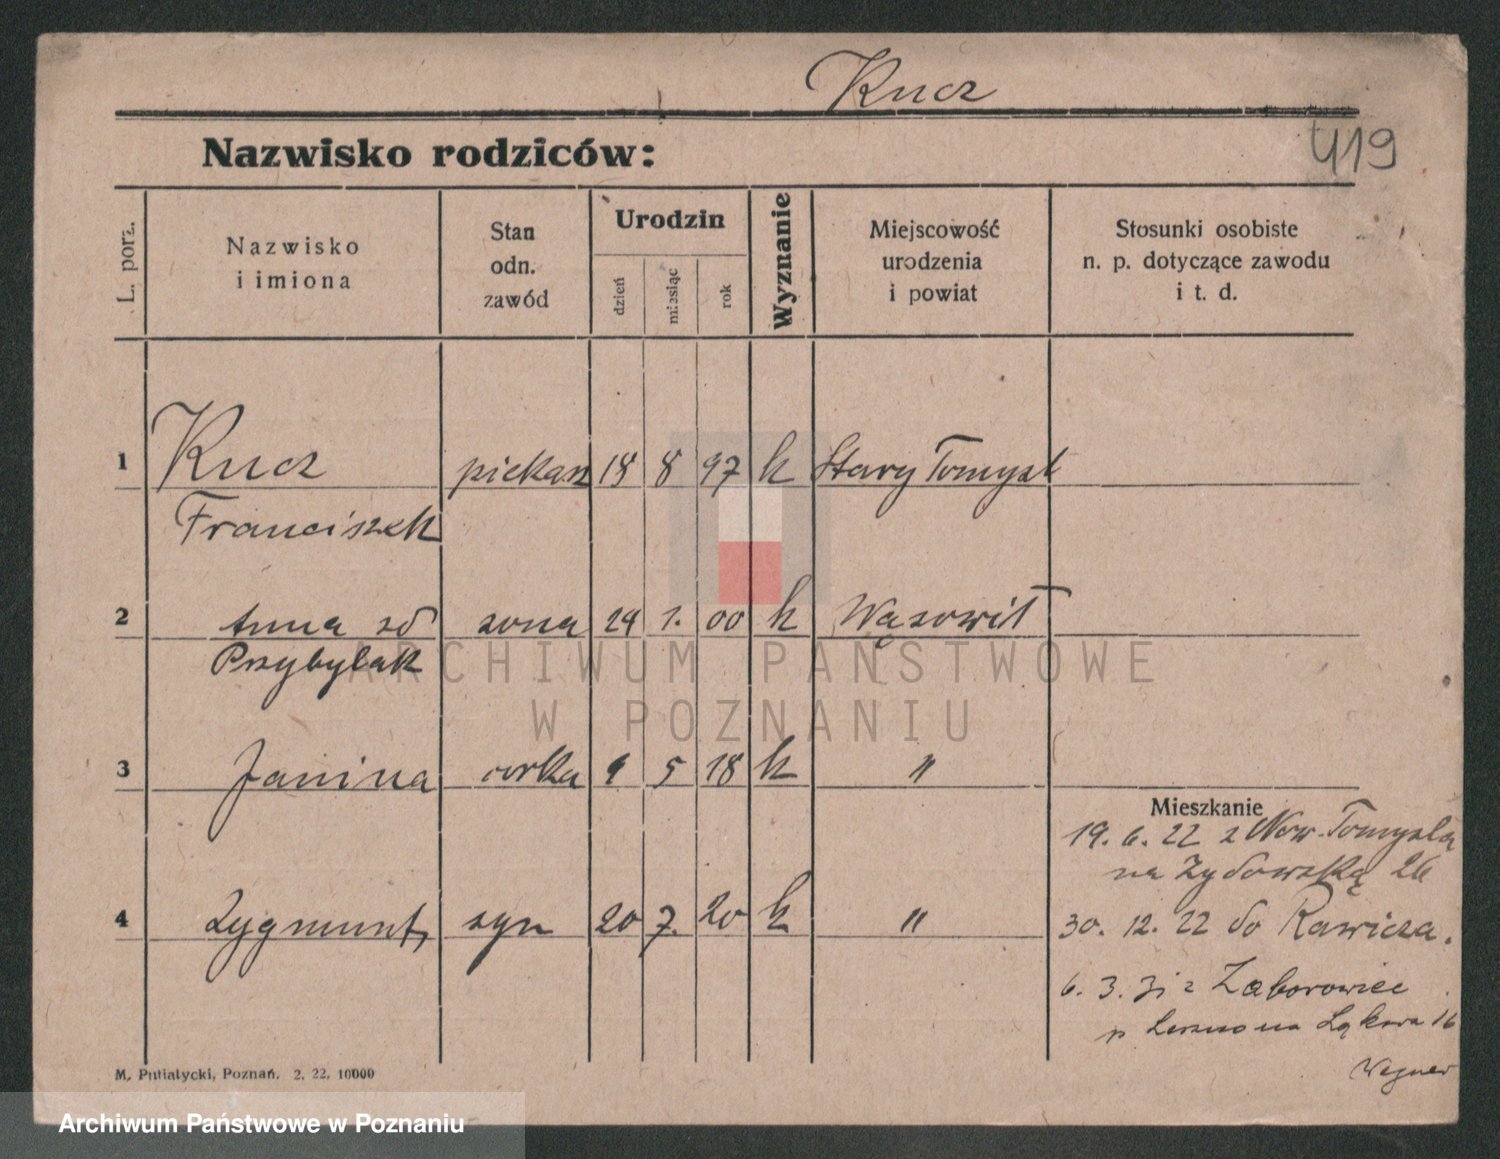 Kucz
419
Nazwisko rodziców:
L. porz.
Nazwisko
i imiona
Stan
odn.
zawód
Urodzin
dzień
miesiąc
rok
Wyznanie
Miejscowość
urodzenia
i powiat
Stosunki osobiste
n. p. dotyczące zawodu
i t. d.
1 Kucz piekarz 18 8 97 k Stary Tomyśl
Franciszek
2 Anna zd żona 29 1. 00 k
Przybylak
3 Janina córka 9 5 18 k "
Mieszkanie
19. 6. 22 z Now. Tomyśla
na Żydowską 26
4 Zygmunt, syn 20 7. 20 k "
30. 12. 22 do Rawicza.
6. 3. 31 z Zaborowiec
p Leszno na Łąkowa 16
Wegner
M. Putiatycki, Poznań. 2. 22. 10000
ARCHIWUM PAŃSTWOWE
W POZNANIU
Archiwum Państwowe w Poznaniu